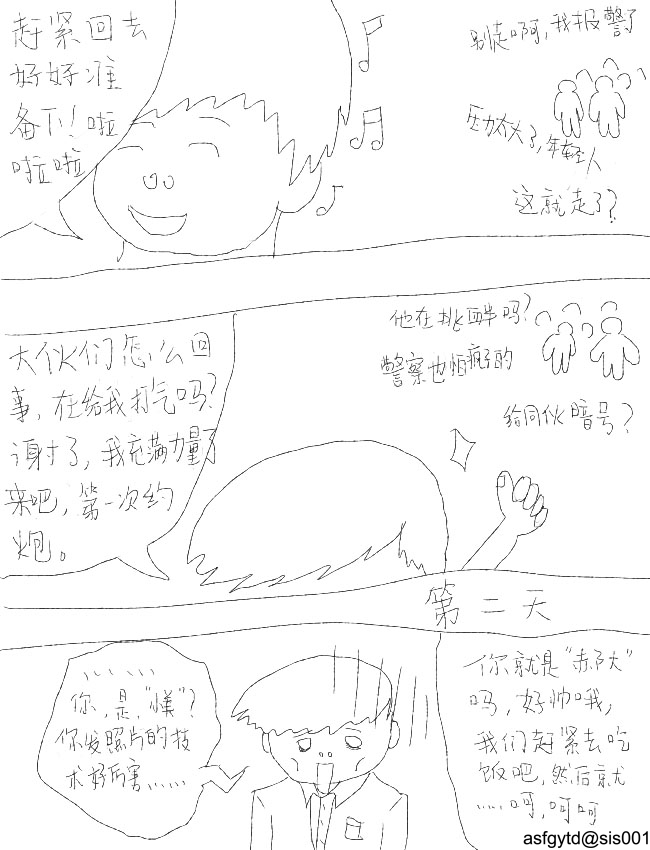 赶紧回去
好好准
备下!啦
啦啦
别走啊,我报警了
压力太大了,年轻人
这就走了?
大伙们怎么回
事,在给我打气吗?
谢了,我充满力量了
来吧,第一次约
炮。
他在挑衅吗?
警察也怕疯子的
给同伙暗号?
第二天
、、、、、、
你,是,“
”?
你发照片的技
术好厉害……
你就是“赤
”
吗,好帅哦,
我们赶紧去吃
饭吧,然后就
……呵,呵呵
asfgytd@sis001